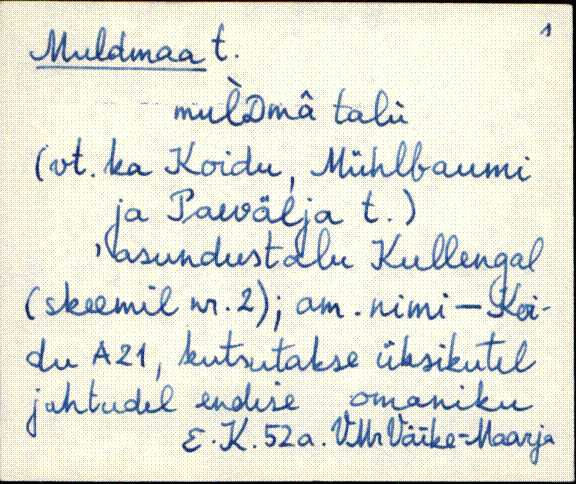 1
Muldmaa t.
mul̀Dmâ talu
(vt. ka Koidu, Mühlbaumi
ja Paevälja t.)
'asundustalu Kullengal
(skeemil nr. 2); am. nimi – Koi-
du A21, kutsutakse üksikutel
juhtudel endise omaniku
E. K. 52a. VMr Väike-Maarja